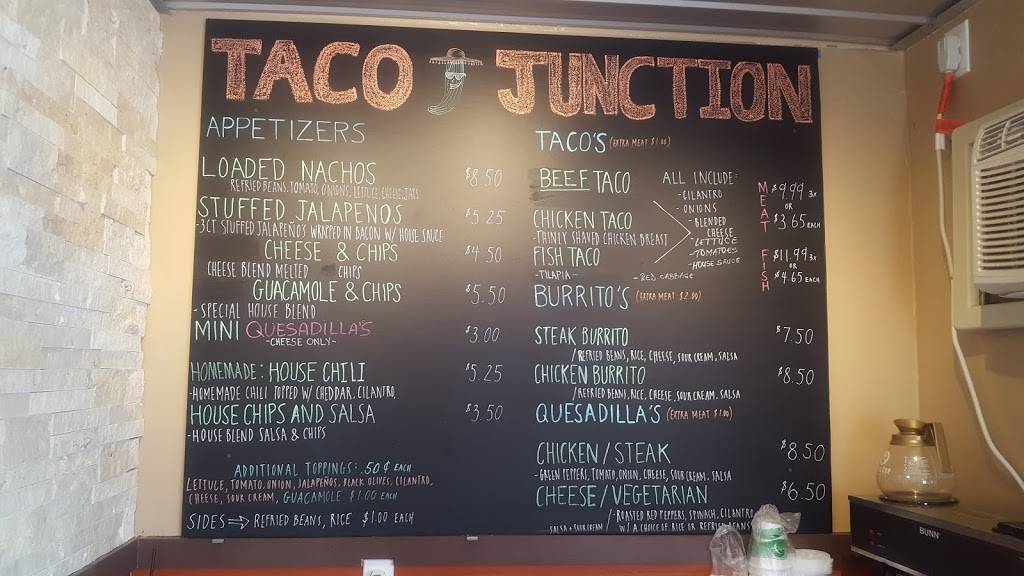 TACO JUNCTION
APPETIZERS
LOADED NACHOS $8.50
REFRIED BEANS, TOMATO, ONIONS, LETTUCE, CHEESE,
STUFFED JALAPENOS $5.25
-3CT STUFFED JALAPENO'S WRAPPED IN BACON W/ HOUSE SAUCE
CHEESE & CHIPS $4.50
CHEESE BLEND MELTED CHIPS
GUACAMOLE & CHIPS $5.50
-SPECIAL HOUSE BLEND
MINI QUESADILLA'S $3.00
-CHEESE ONLY-
HOMEMADE: HOUSE CHILI $5.25
-HOMEMADE CHILI TOPPED W/ CHEDDAR, CILANTRO,
HOUSE CHIPS AND SALSA $3.50
-HOUSE BLEND SALSA & CHIPS
ADDITIONAL TOPPINGS: .50¢ EACH
LETTUCE, TOMATO, ONION, JALAPEÑOS, BLACK OLIVES, CILANTRO,
CHEESE, SOUR CREAM, GUACAMOLE $1.00 EACH
SIDES⇒ REFRIED BEANS, RICE $1.00 EACH
TACO'S (EXTRA MEAT $1.00)
BEEF TACO
CHICKEN TACO
-THINLY SHAVED CHICKEN BREAST
FISH TACO
-TILAPIA- -RED CABBAGE
ALL INCLUDE:
-CILANTRO
-ONIONS
-BLENDED
CHEESE
-LETTUCE
-TOMATOES
-HOUSE SAUCE
MEAT
$9.99 3x
OR
$3.65 EACH
FISH
$11.99 3x
OR
$4.65 EACH
BURRITO'S (EXTRA MEAT $2.00)
STEAK BURRITO $7.50
/REFRIED BEANS, RICE, CHEESE, SOUR CREAM, SALSA
CHICKEN BURRITO $8.50
/REFRIED BEANS, RICE, CHEESE, SOUR CREAM. SALSA
QUESADILLA'S (EXTRA MEAT $1.00)
CHICKEN/STEAK $8.50
-GREEN PEPPERS, TOMATO, ONION, CHEESE, SOUR CREAM, SALSA
CHEESE/VEGETARIAN $6.50
/ROASTED RED PEPPERS, SPINACH, CILANTRO
SALSA + SOUR CREAM W/ A CHOICE OF RICE OR REFRIED BEANS
BUNN